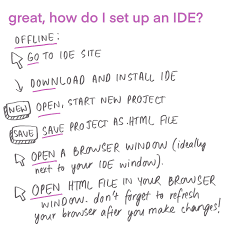 great, how do I set up an IDE?
OFFLINE:
GO TO IDE SITE
DOWNLOAD AND INSTALL IDE
NEW OPEN, START NEW PROJECT
SAVE SAVE PROJECT AS .HTML FILE
OPEN A BROWSER WINDOW (ideally
next to your IDE window).
OPEN HTML FILE IN YOUR BROWSER
WINDOW. don't forget to refresh
your browser after you make changes!